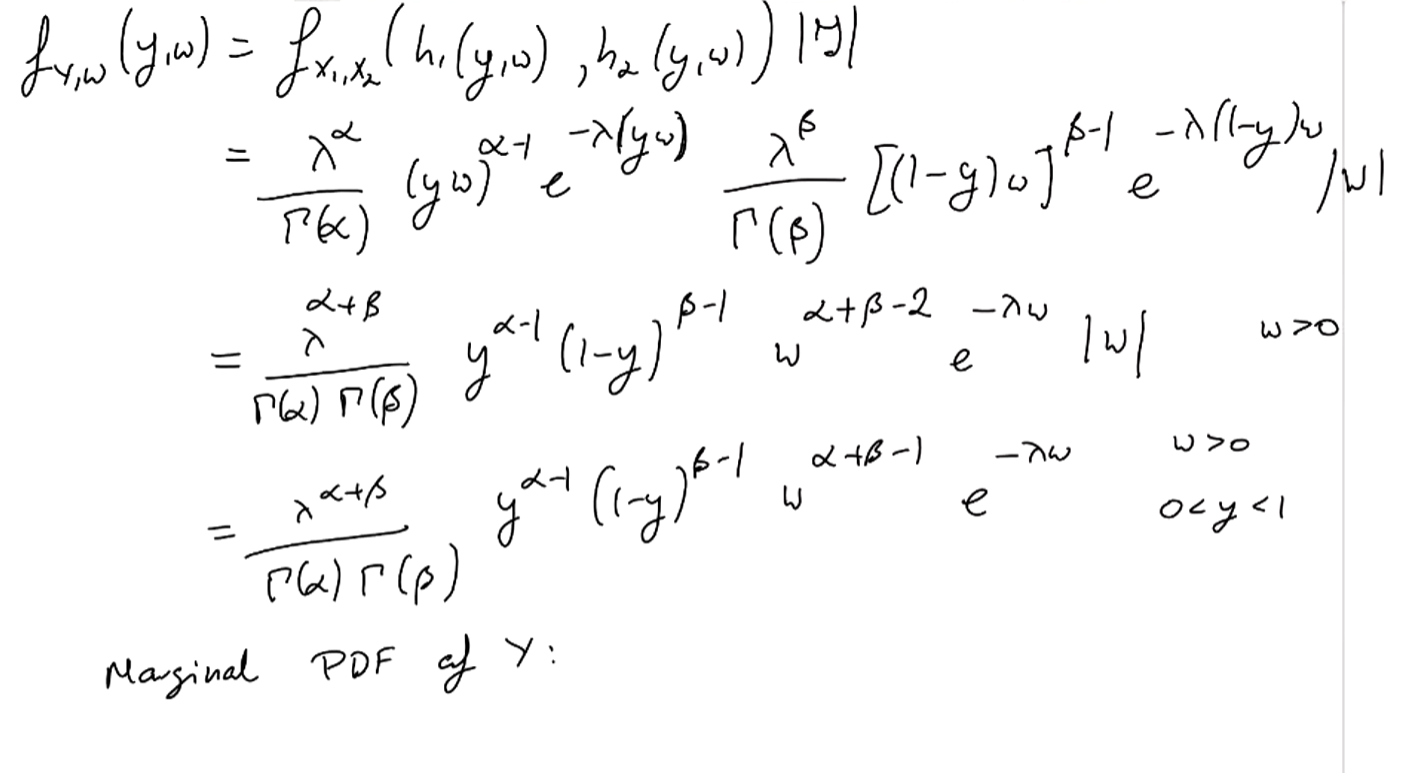 f_{Y,W}(y,w) = f_{X₁,X₂}(h₁(y,w), h₂(y,w)) |J|
= \frac{λ^α}{Γ(α)} (yw)^{α-1} e^{-λ(yw)} \frac{λ^β}{Γ(β)} [(1-y)w]^{β-1} e^{-λ(1-y)w} |w|
= \frac{λ^{α+β}}{Γ(α) Γ(β)} y^{α-1} (1-y)^{β-1} w^{α+β-2} e^{-λw} |w| w>0
= \frac{λ^{α+β}}{Γ(α) Γ(β)} y^{α-1} (1-y)^{β-1} w^{α+β-1} e^{-λw} w>0 0<y<1
Marginal PDF of Y: